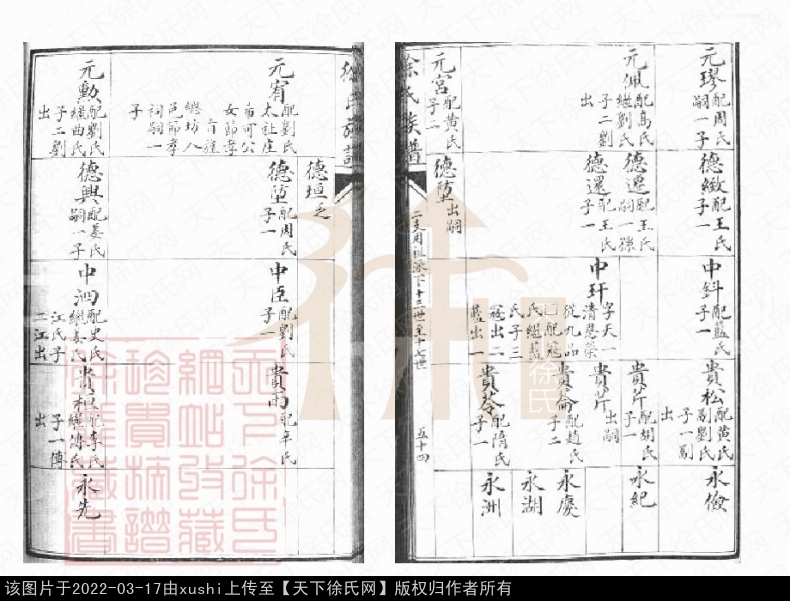 元璆配周氏嗣一子
元佩配高氏繼劉氏子二劉出
元宮配黃氏子二
德緻配王氏子一
德遷配王氏嗣一孫
德還配王氏子一
德堕出嗣
中鈄配藍氏子一
中玕字天一清慧榮從九品配寇氏繼藍氏子三寇出二藍出一
貴松配黃氏副劉氏子一副出
貴芹配胡氏子一
貴芹出嗣
貴崙配趙氏子二
貴苓配隋氏子一
永儉
永紀
永慶
永湖
永洲
徐氏族譜
二支用祖派下十三世至十七世
五十四
徐氏族譜
元宥配劉氏
女節孝
繼坊人
邑節孝
祠嗣一子
元勳配劉氏繼曲氏子二劉出
德垣乏
德堕配周氏子一
德興配姜氏嗣一子
中臣配劉氏子一
中泗配史氏繼姜氏江氏子二江出
貴雨配牟氏
配李氏繼傅氏子一傅出
永先
徐氏
该图片于2022-03-17由xushi上传至【天下徐氏网】版权归作者所有